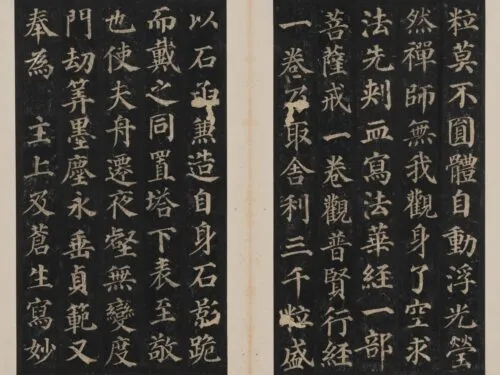 粒莫不圓體自動浮光瑩
然禪師無我觀身了空求
法先刺血寫法華經一部
菩薩戒一卷觀普賢行經
一卷乃取舍利三千粒盛
以石兼造自身石影跪
而戴之同置塔下表至敬
也使夫舟遷夜壑無變度
門劫筭墨塵永垂貞範又
奉為 主上及蒼生寫妙